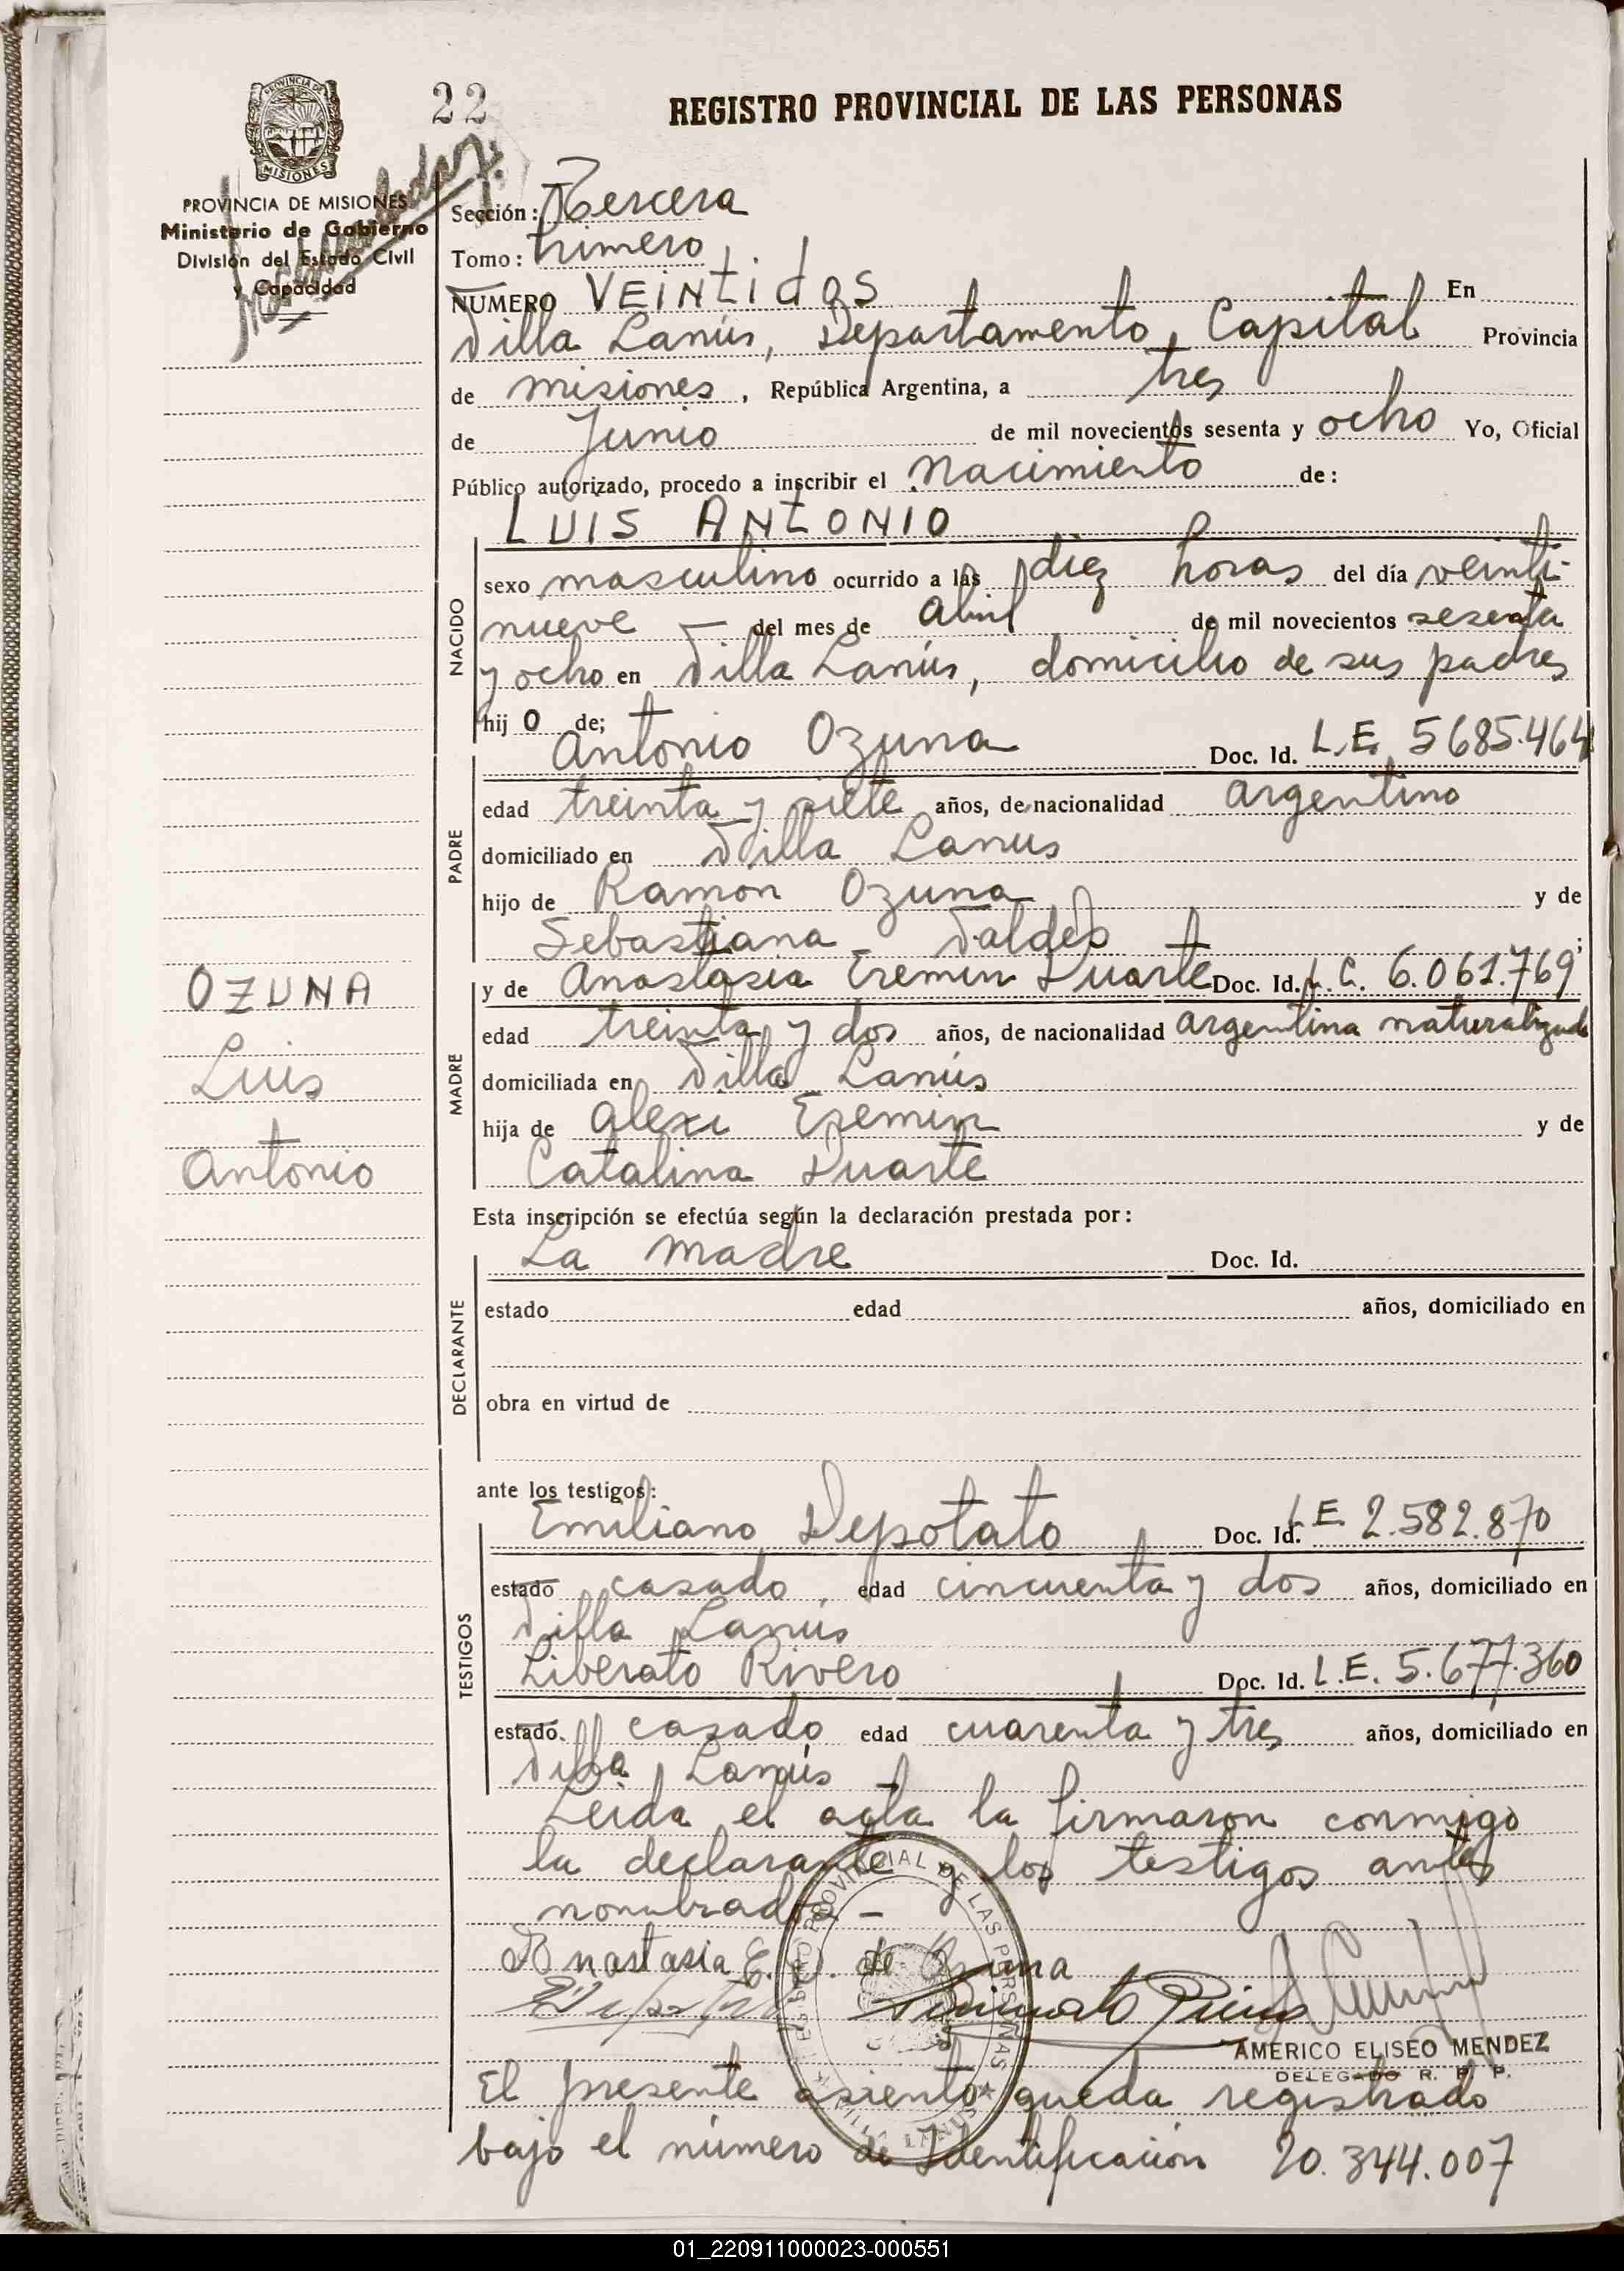 22
REGISTRO PROVINCIAL DE LAS PERSONAS
PROVINCIA DE MISIONES
Ministerio de Gobierno
División del Estado Civil
y Capacidad
Sección: Tercera
Tomo: Primero
NUMERO VEINTIdOS En
Villa Lanús, Departamento, Capital Provincia
de misiones, República Argentina, a tres
de Junio de mil novecientos sesenta y ocho Yo, Oficial
Público autorizado, procedo a inscribir el Nacimiento de:
LUIS ANTONIO
NACIDO
sexo masculino ocurrido a las diez horas del día veinti-
nueve — del mes de Abril de mil novecientos sesenta
y ocho en Villa Lanús, domicilio de sus padres
hijo de;
Antonio Ozuna Doc. Id. L.E. 5685.464
PADRE
edad treinta y siete años, de nacionalidad argentino
domiciliado en Villa Lanus
hijo de Ramón Ozuna y de
Sebastiana Valdés;
y de Anastasia Eremin Duarte Doc. Id. L.C. 6.061.769
MADRE
edad treinta y dos años, de nacionalidad argentina naturalizada
domiciliada en Villa Lanús
hija de Alexi Eremin y de
Catalina Duarte
OZUNA
Luis
Antonio
Esta inscripción se efectúa según la declaración prestada por:
La madre Doc. Id.
DECLARANTE
estado edad años, domiciliado en
obra en virtud de
ante los testigos:
Emiliano Depotato Doc. Id. L.E. 2.582.870
TESTIGOS
estado casado, edad cincuenta y dos años, domiciliado en
Villa Lanús
Liberato Rivero Doc. Id. L.E. 5.677.360
estado casado edad cuarenta y tres años, domiciliado en
Villa Lanús
Leida el acta la firmaron conmigo
la declarante y los testigos antes
nombrados –
Anastasia E. D. de Ozuna
AMERICO ELISEO MENDEZ
DELEGADO R. P. P.
REGISTRO PROVINCIAL DE LAS PERSONAS ★ VILLA LANUS
El presente asiento queda registrado
bajo el número de Identificación 20.344.007
01_220911000023-000551